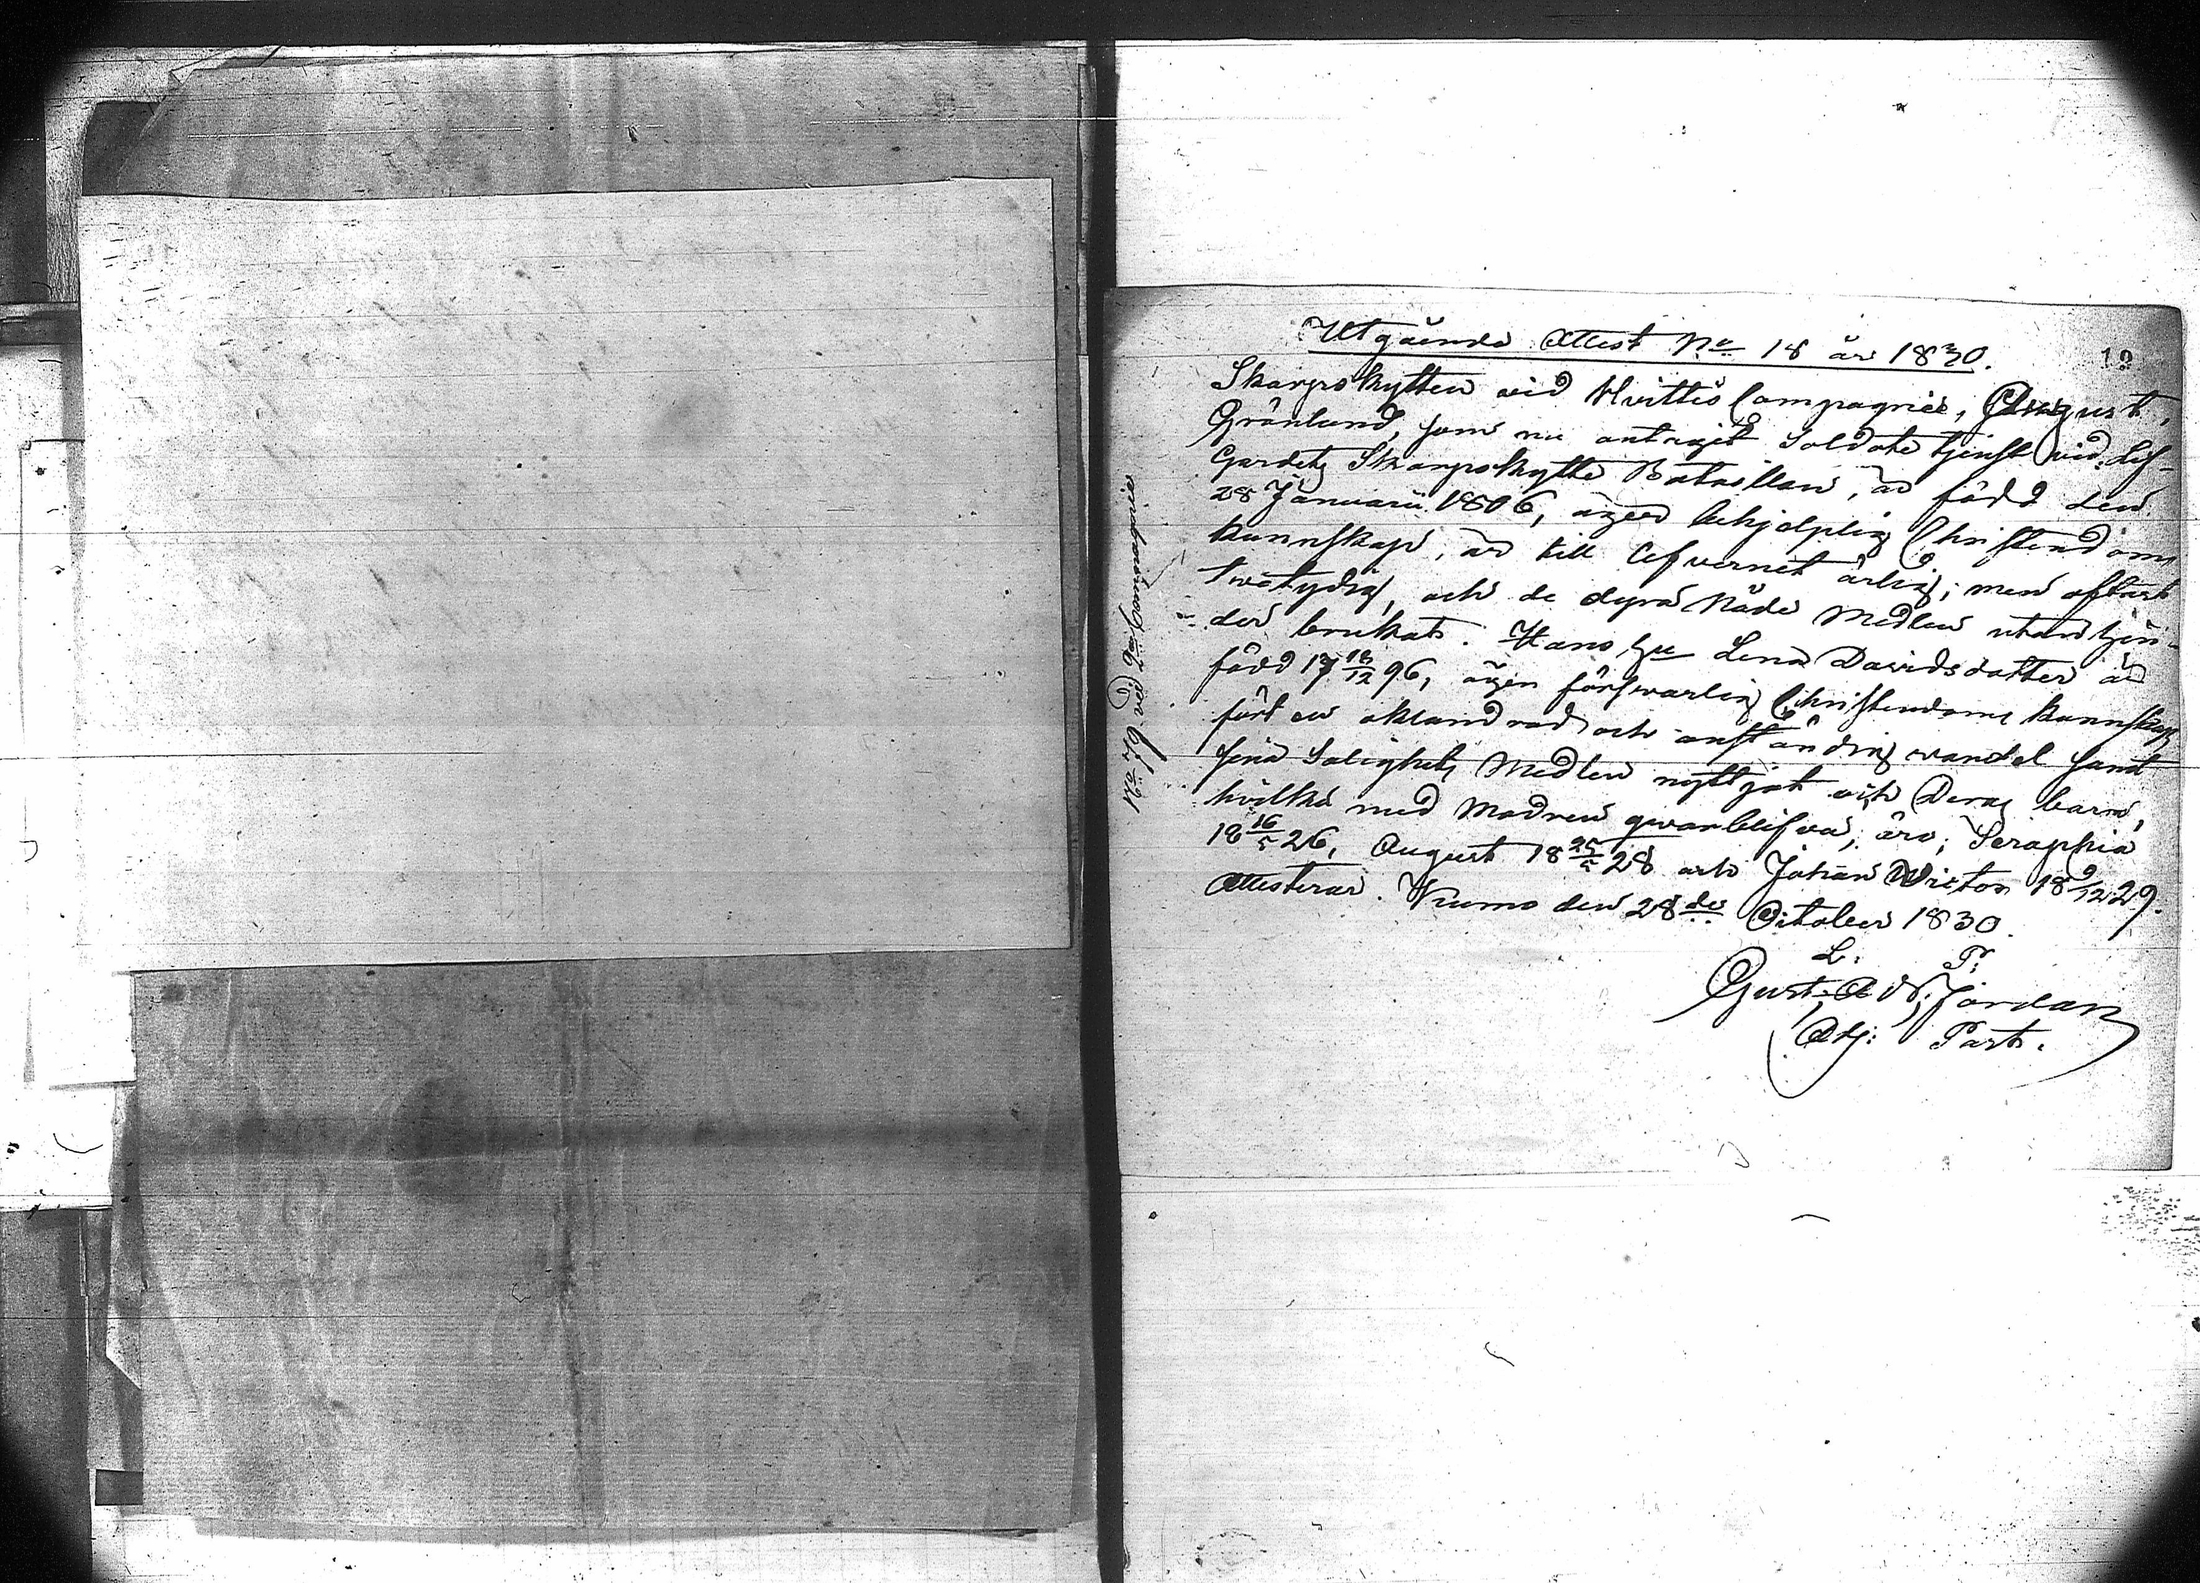 Utgående Attest No 18 år 1830.
12
Skarpskytten vid Hvittis Compagnie, August
Grönlund, som nu antagit Soldate tjenst vid Lif-
Gardets Skarpskytte Bataillon, är född den
28 Januarii 1806, äger behjelplig Christendoms
kunnskap, är till lefvernet ärlig; men oftast
twetydig, och de dyra Nåde Medlen utan hjen-
der brukat. Hans hu Lena Davidsdotter är
född 17 18/12 96, ägen förswarlig Christendoms kunnskap
fört en oklandrad och anständig vandel samt
sina Salighets Medlen nyttjat och Deras barn,
hvilka med Modren qwarblifva, äro; Seraphia
18 16/5 26, August 18 25/5 28 och Johan Victor 18 9/12 29.
Attesterar. Wiemo den 28de October 1830.
L. P.
Gust. Ad. Jordan
Adj: Past.
No 79 vid 2dra Compagnie